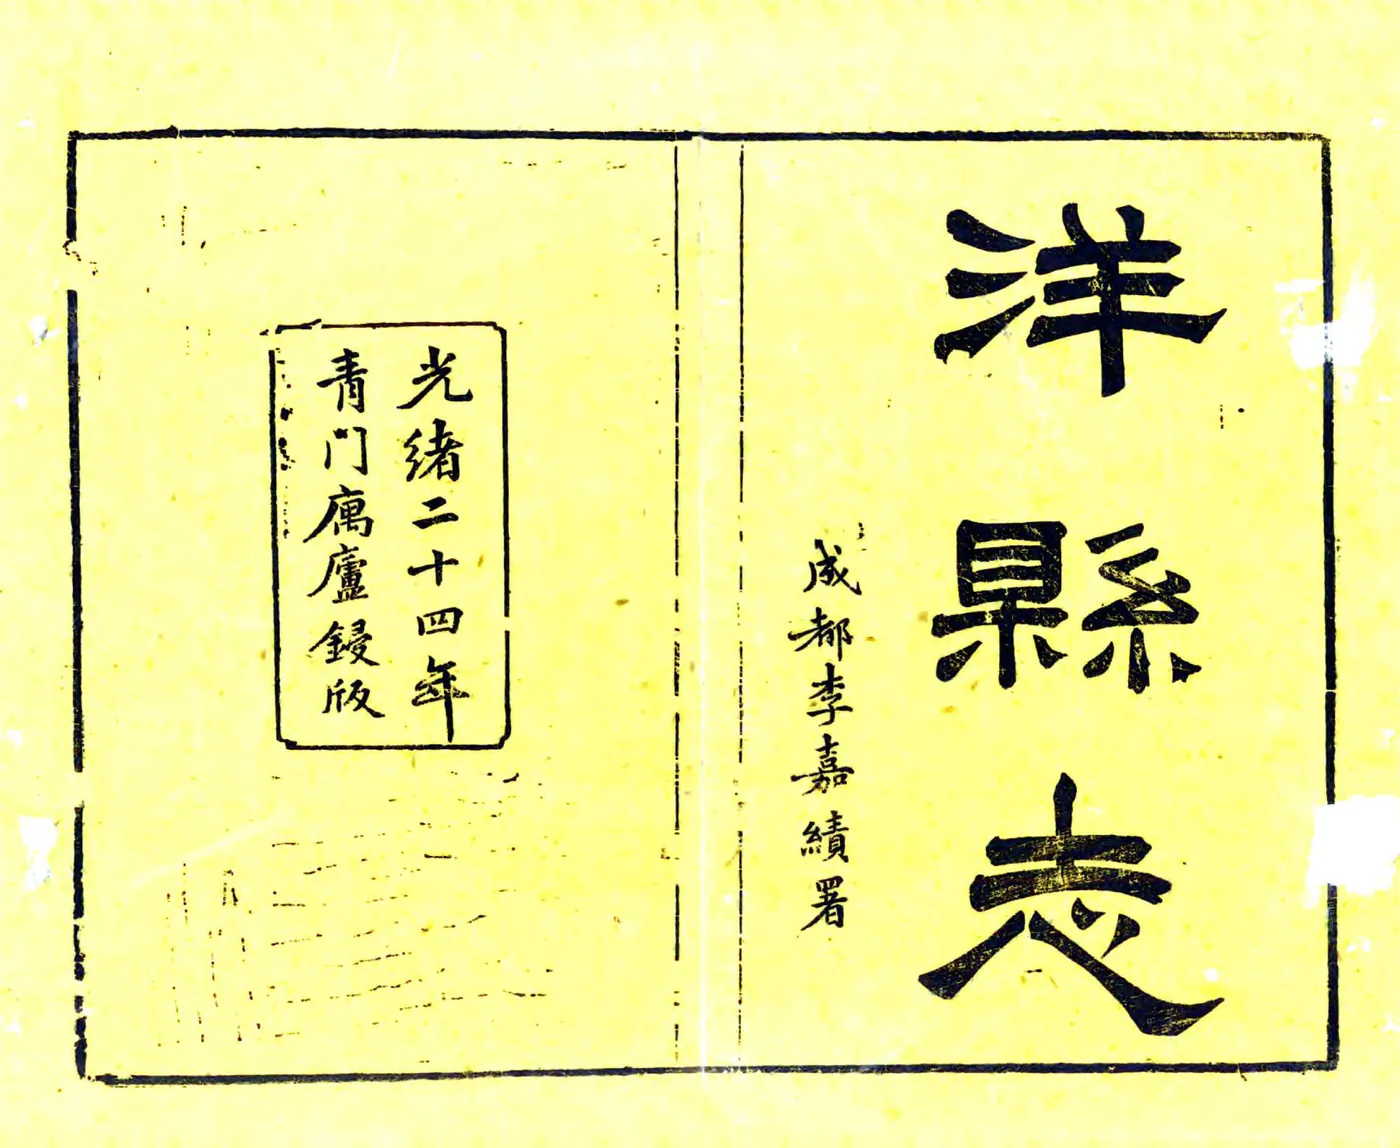 洋縣志
成都李嘉績署
光緒二十四年
青門寓廬鋟版